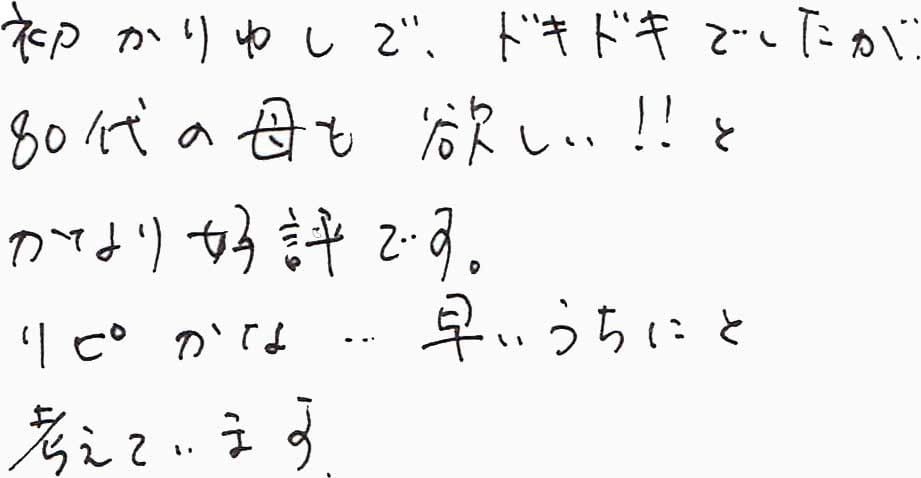 初かりゆしで、ドキドキでしたが
80代の母も 欲しい!!と
かなり好評です。
リピかな… 早いうちにと
考えています。